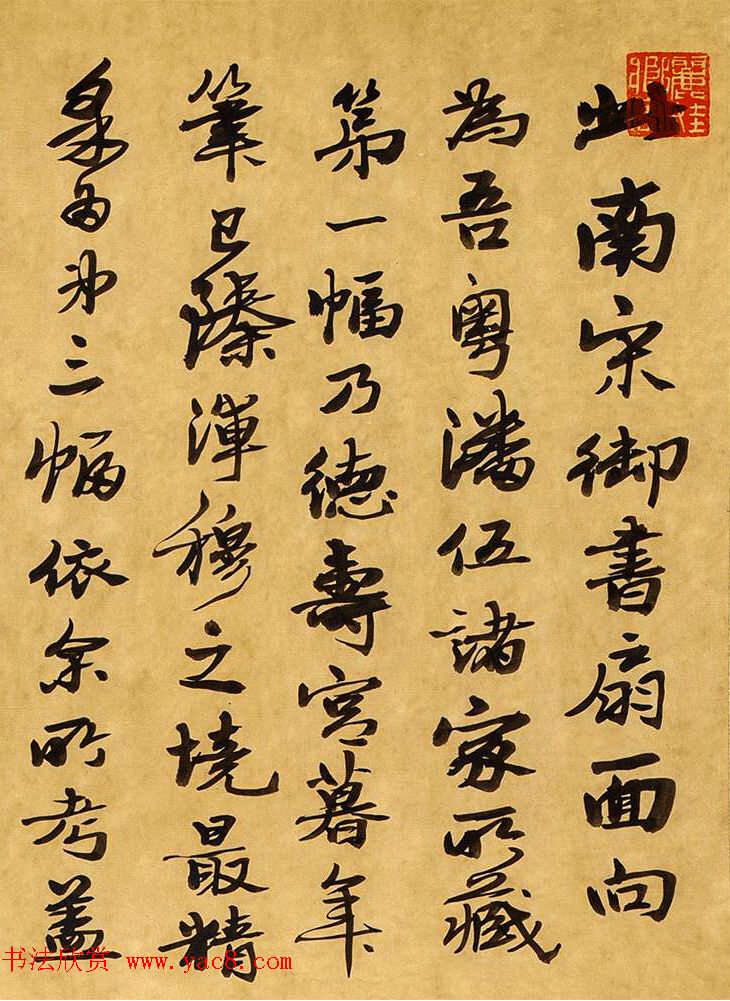 此南宋御書扇面向
為吾粵潘伍諸家所藏
第一幅乃德壽宮暮年
筆已臻渾穆之境最精
采為弟三幅依余所考蓋
书法欣赏 www.yac8.com